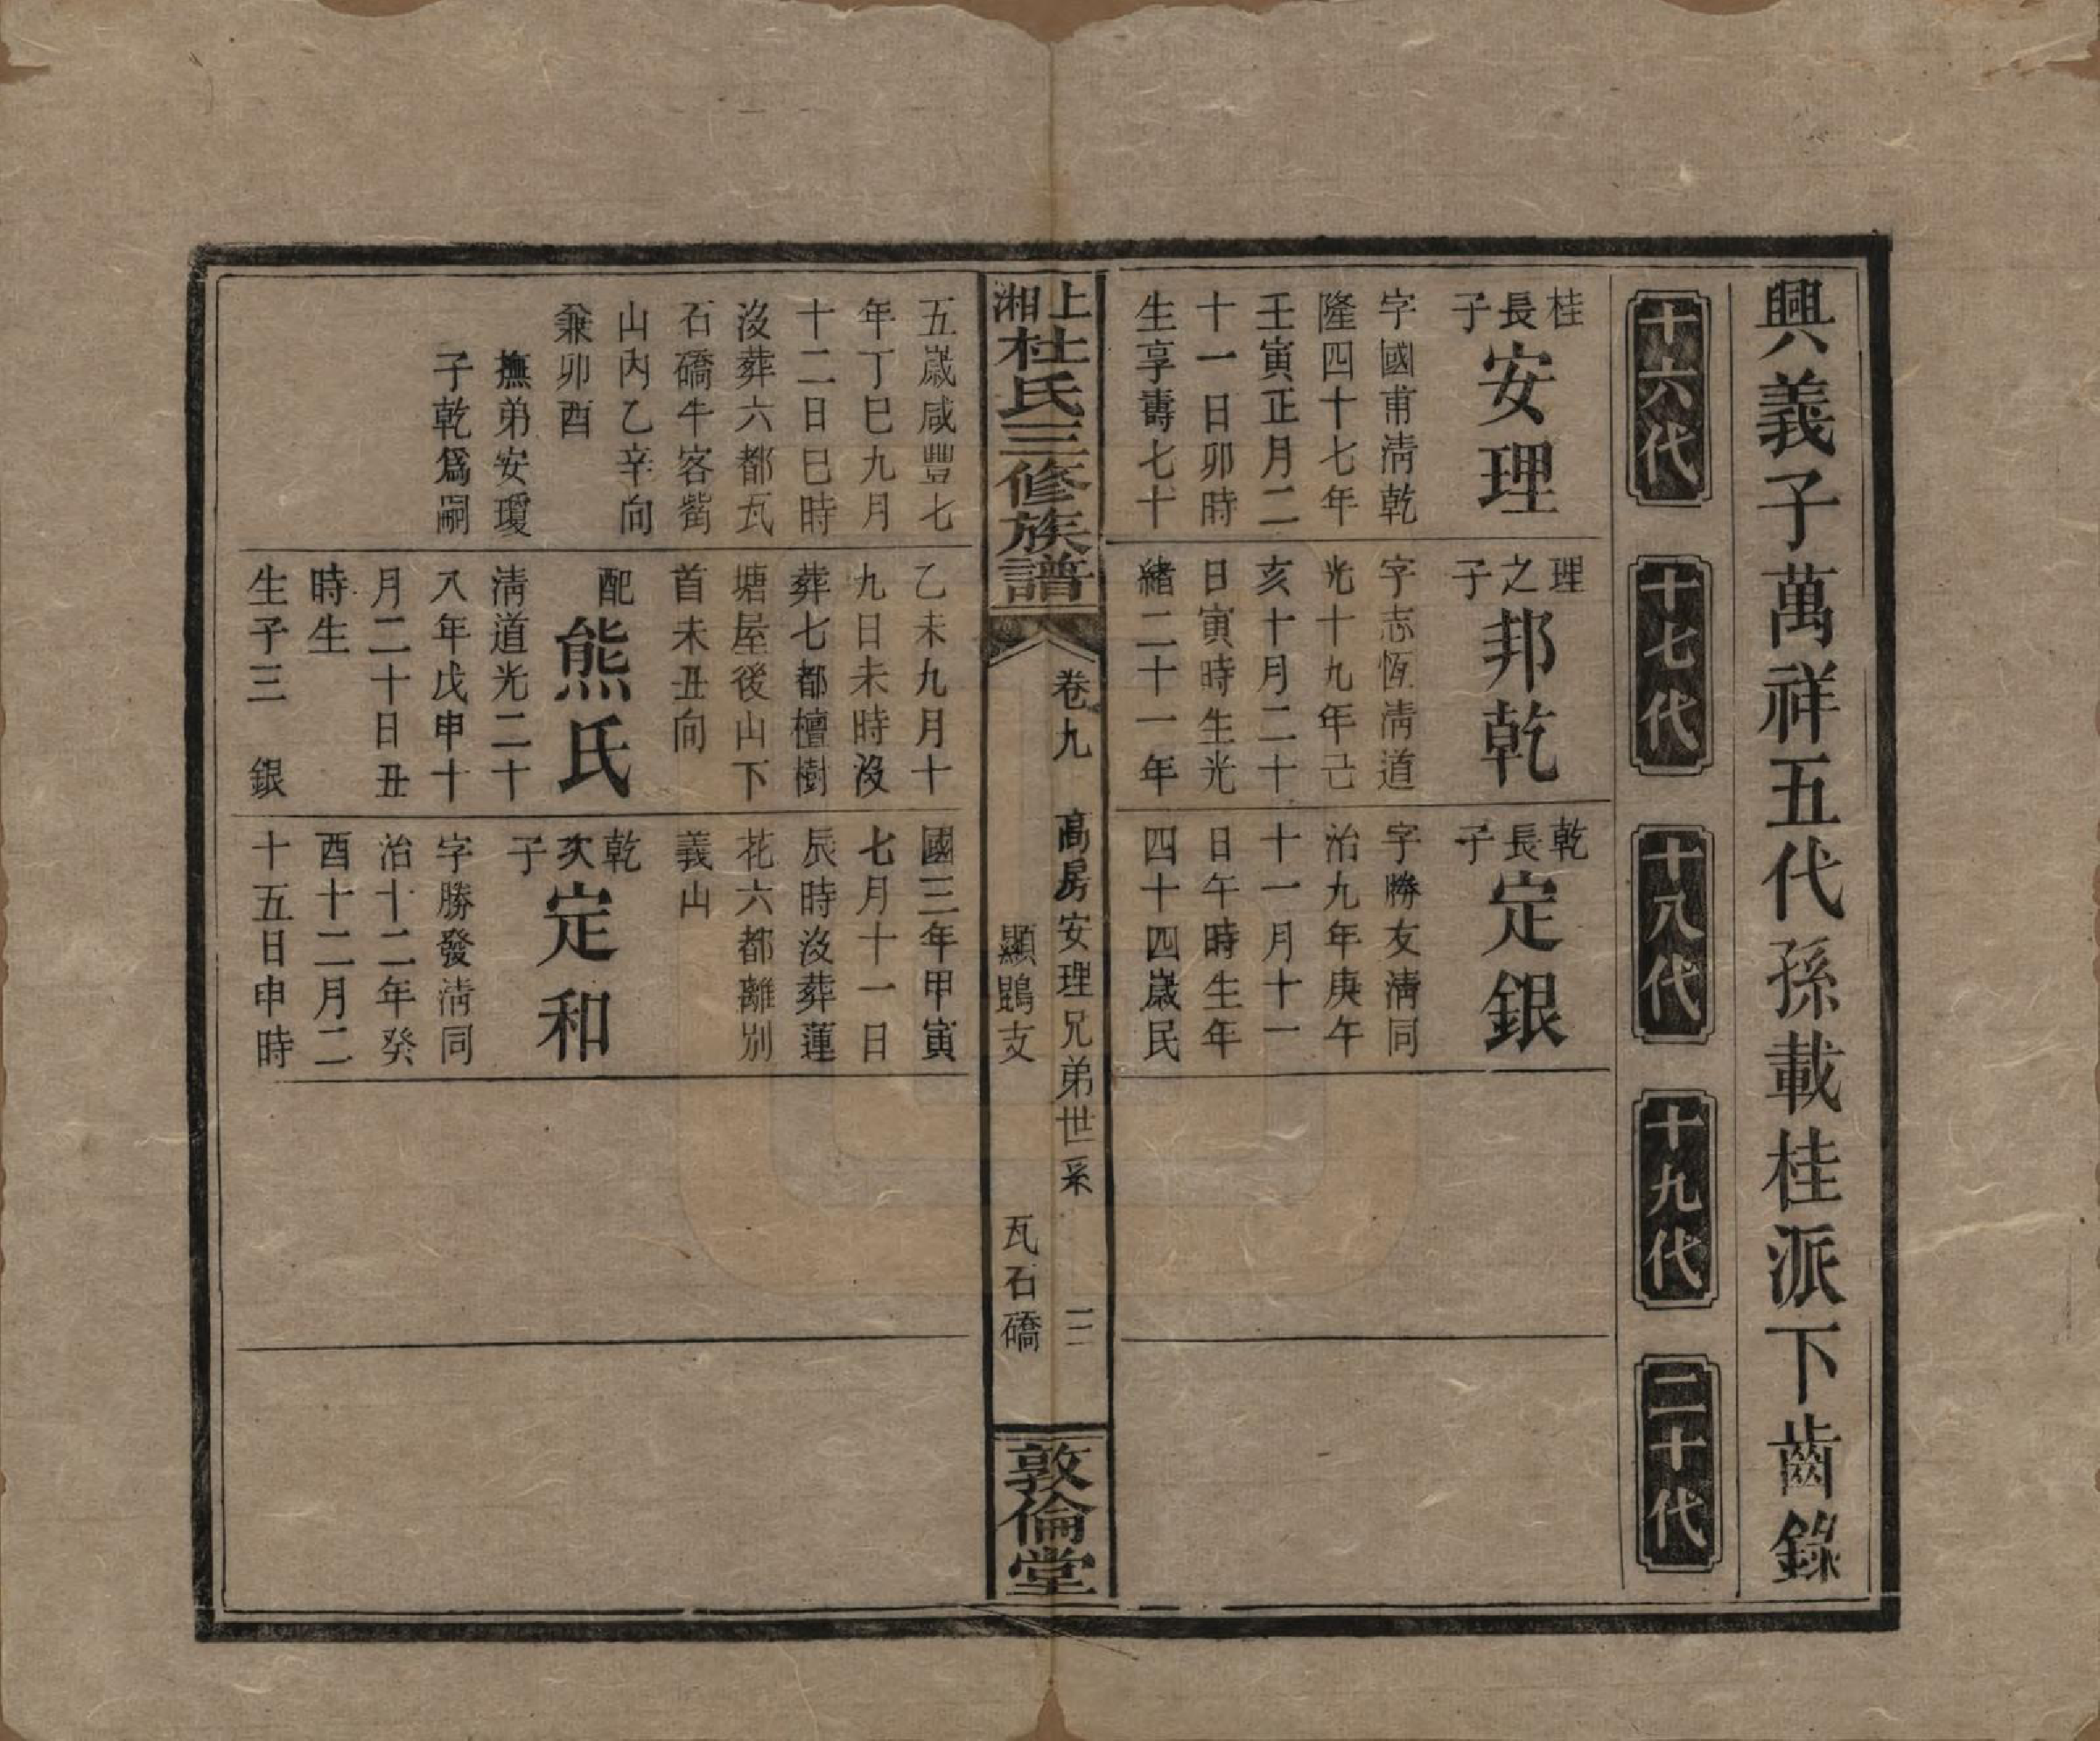 興義子萬祥五代孫載桂派下齒錄
十六代
十七代
十八代
十九代
二十代
桂長子
安理
字國甫淸乾
隆四十七年
壬寅正月二
十一日卯時
生享壽七十
理之子
邦乾
字志恆淸道
光十九年己
亥十月二十
日寅時生光
緒二十一年
乾長子
定銀
字勝友淸同
治九年庚午
十一月十一
日午時生年
四十四歲民
上湘
杜氏三修族譜
卷九
高房安理兄弟世系
顯鵾支
瓦石礄
二
敦倫堂
五歲咸豐七
年丁巳九月
十二日巳時
沒葬六都瓦
石礄牛客觜
山內乙辛向
兼卯酉
撫弟安瓊
子乾爲嗣
乙未九月十
九日未時沒
葬七都檀樹
塘屋後山下
首未丑向
配
熊氏
淸道光二十
八年戊申十
月二十日丑
時生
生子三 銀
國三年甲寅
七月十一日
辰時沒葬蓮
花六都離別
義山
乾次子
定和
字勝發淸同
治十二年癸
酉十二月二
十五日申時